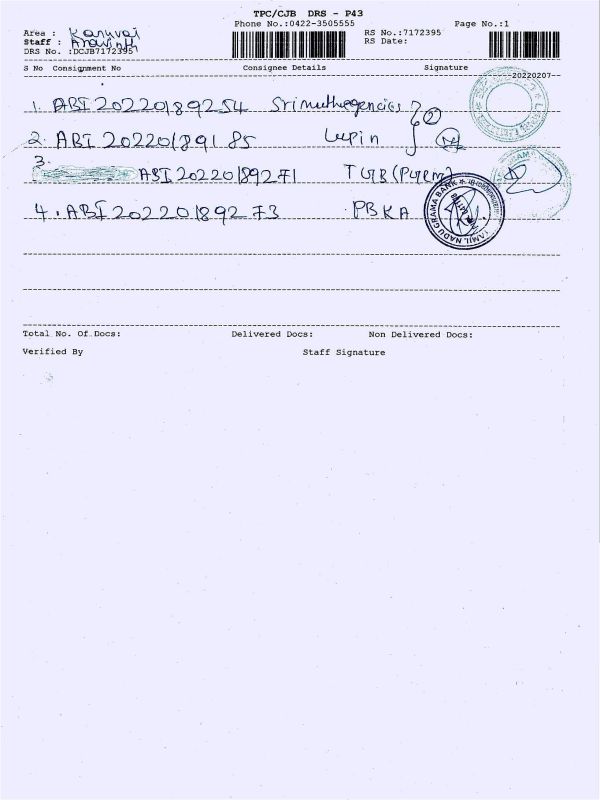 TPC/CJB DRS - P43
Phone No.:0422-3505555 Page No.:1
Area : Karuvai
Staff : Aravinth
DRS No. :DCJB7172395
RS No.:7172395
RS Date:
S No Consignment No Consignee Details Signature
20220207
1. ABI 202201892 54
2. ABI 202201891 85 Lupin
3. ABI 202201892 71
4. ABI 202201892 73 PBKA
TAMIL NADU GRAMA BANK
Total No. Of.Docs: Delivered Docs: Non Delivered Docs:
Verified By Staff Signature